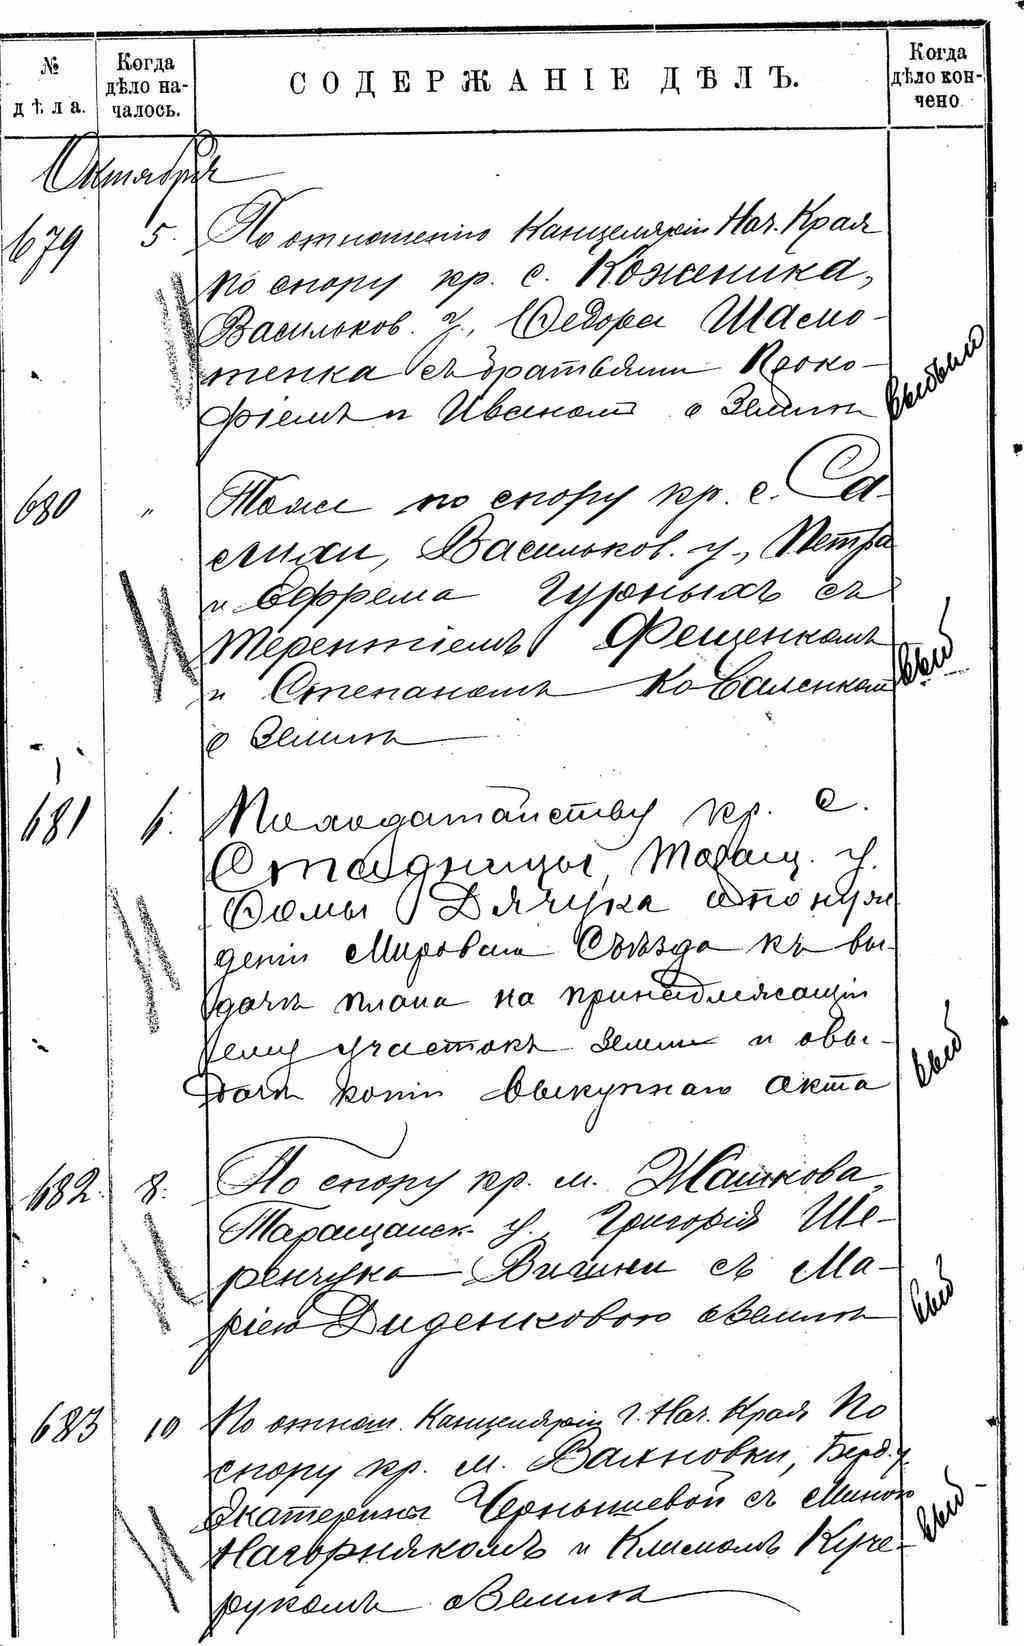 № дѣла.
Когда дѣло началось.
СОДЕРЖАНІЕ ДѢЛЪ.
Когда дѣло кончено
Октября
679 5. По отношенію Канцеляріи Нач. Края
по спору кр. с. Коженика,
Васильков. у., Ѳедора Шамо-
тенка съ братьями Проко-
фіемъ и Иваномъ о землѣ
выбыло
680 " Тоже по спору кр. с. Са-
лихи, Васильков. у., Петра
и Ефрема Гурныхъ съ
Терентіемъ Фещенкомъ
и Степаномъ Коваленкомъ
о землѣ
выб
681 6. По ходатайству кр. с.
Стадницы, Таращ. у.
Ѳомы Дячука о понуж
деніи Мироваго Съѣзда къ вы-
дачѣ плана на принадлежащій
ему участокъ земли и о вы-
дачѣ копіи выкупнаго акта
выб
682. 8. По спору кр. м. Жашкова,
Таращанск. у. Григорія Ше-
ренчука съ Ма-
ріею Диденковою о землѣ
выб
683 10 По отнош. Канцеляріи Г. Нач. Края по
спору кр. м. Вахновки, Берд. у.
Екатерины Чернышевой съ
Нагорнякомъ и Климомъ Куче-
рукомъ о землѣ
выб